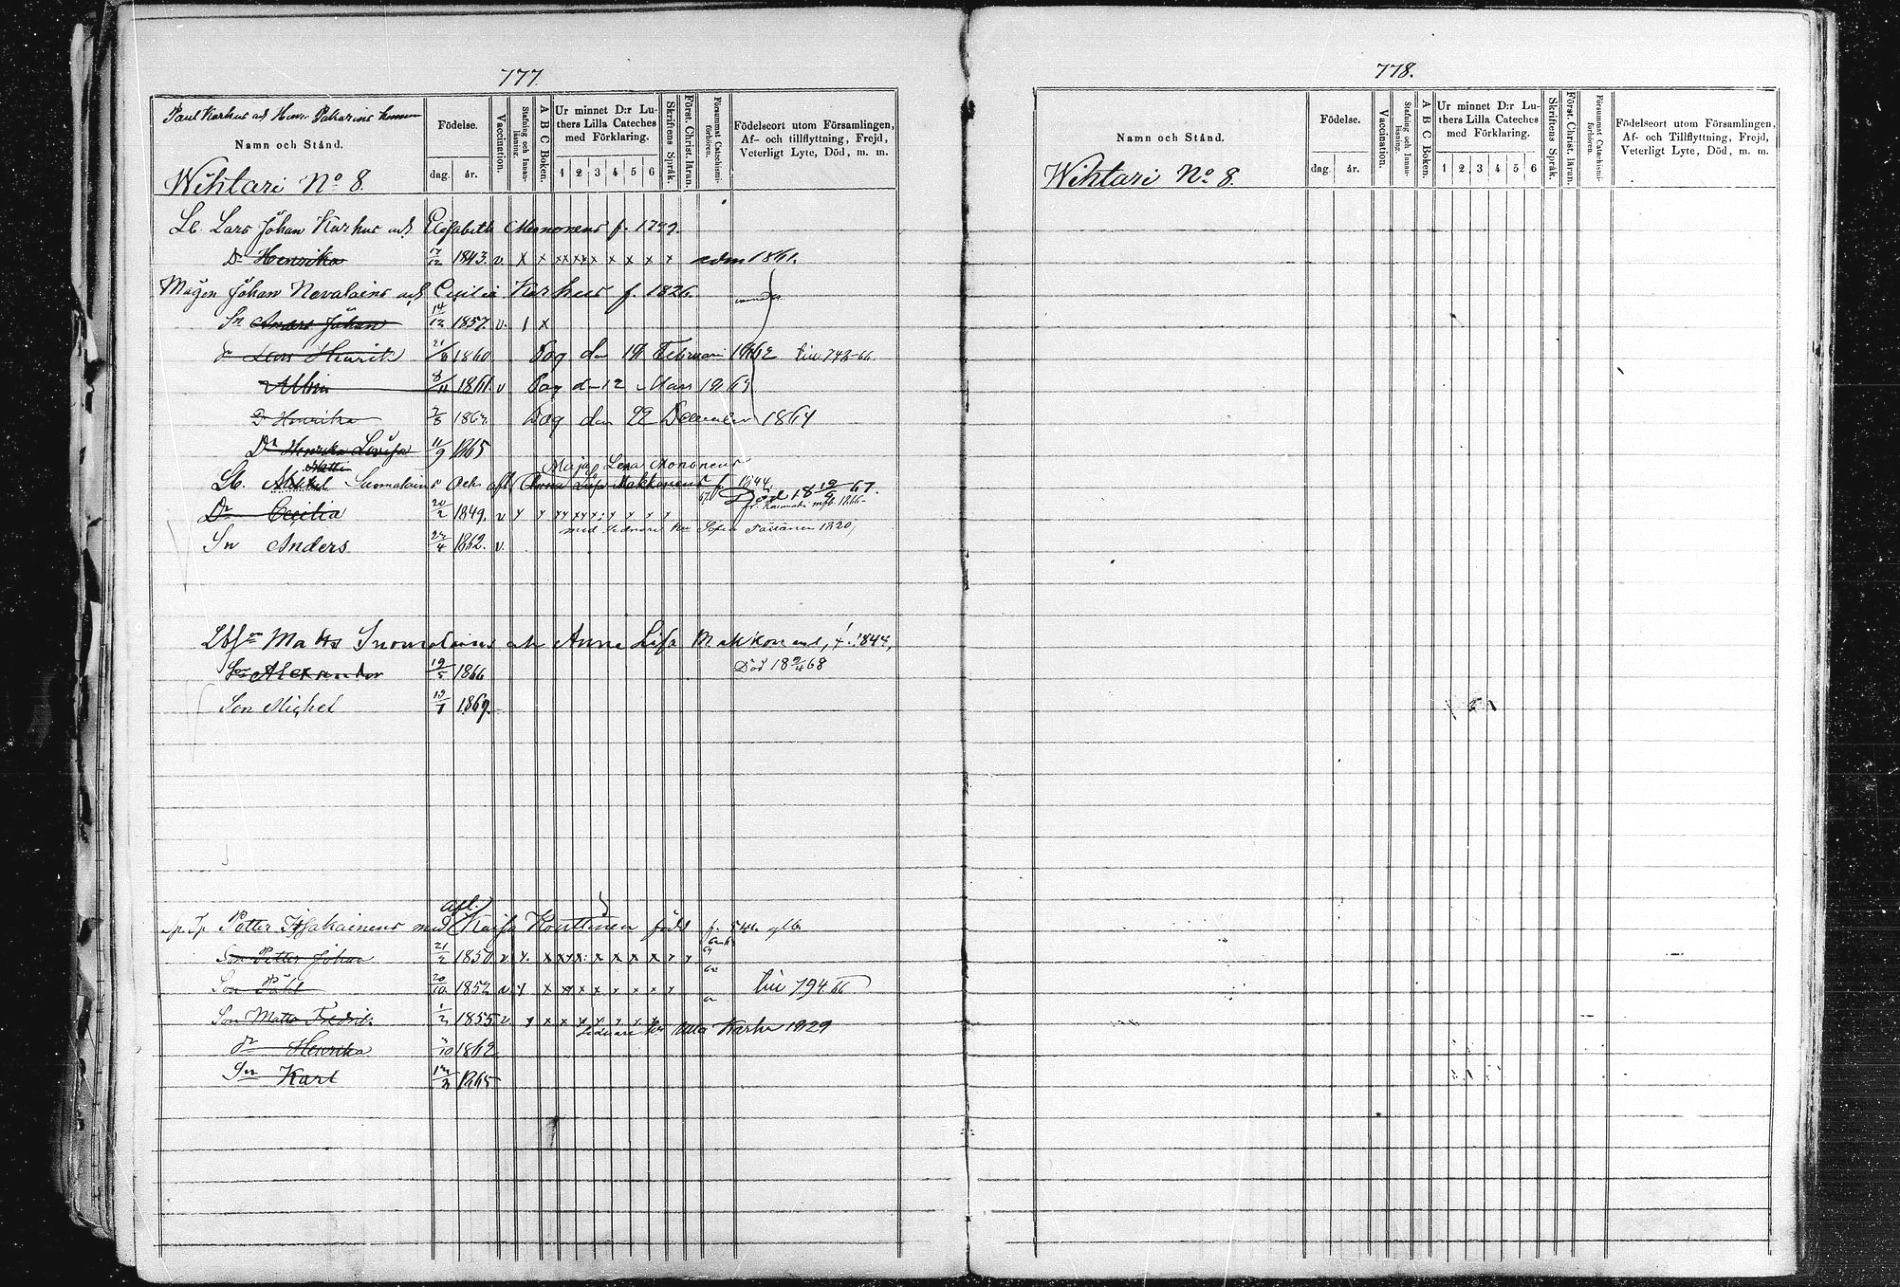 777.
Paul Karhus och Henr. Pakarins hemman
Namn och Stånd.
Wihtari No 8.
Födelse.
dag. år.
Vaccination.
Stafning och Innanläsning.
A B C Boken.
Ur minnet D:r Luthers Lilla Cateches med Förklaring.
1 2 3 4 5 6
Skriftens Språk.
Först. Christ. läran.
Försummat Catechismiförhören.
Födelseort utom Församlingen, Af- och tillflyttning, Frejd, Veterligt Lyte, Död, m. m.
Lb. Lars Johan Karhus och Elisabeth Mononens f. 1799.
Dr Henrika 17/12 1843. v. x x xx xx x x x x x adm 1861.
Mågen Johan Nevalains och Cecilia Karhus f. 1826.
Sn Anders Johan 14/12 1857. v. 1 x
Sn Lars Henrik 21/6 1860 Dog den 19 Februari 1862 liu 748-66
Albin 8/11 1861. v Dog d 12 Mars 1863
Dr Henrika 2/5 1864 Dog den 22 December 1864
Dr Henrika Lovisa 11/9 1865
Maja Lena Mononens
Matti
Lb. Suomalains och afl. Anna Lisa Makkonens f. 1844.
Död 18 12/9 67.
Dr Cecilia 20/2 1849. v x x xx xx x x x x x
med Sofia 1820,
Sn Anders 24/4 1862. v.
Matts Suomalains och Anna Lisa Makkonens, f. 1844,
Son Alexander 19/5 1866 Död 18 9/4 68
Son Mighel 19/1 1869.
afl.
Petter Issakainens med Kaisa Honttinen född
Son Petter Johan 21/2 1850 v x. x xxx: x x x x x x
Son Påhl 20/10 1852 v x x xx x x x x x x liu 794 66
Son Matts Fredrik 1/2 1855 v x x x x x x x x
Ulla Karhu 1829
dr Henrika 5/10 1862
Sn Karl 14/2 1865
778.
Namn och Stånd.
Wihtari No 8.
Födelse.
dag. år.
Vaccination.
Stafning och Innanläsning.
A B C Boken.
Ur minnet D:r Luthers Lilla Cateches med Förklaring.
1 2 3 4 5 6
Skriftens Språk.
Först. Christ. läran.
Försummat Catechismiförhören.
Födelseort utom Församlingen, Af- och Tillflyttning, Frejd, Veterligt Lyte, Död, m. m.